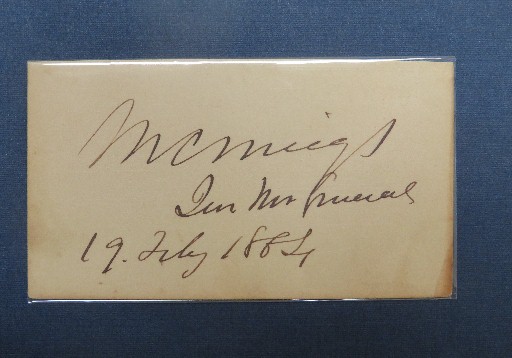 M C Meigs
Qur Mr General
19. Feby 1864